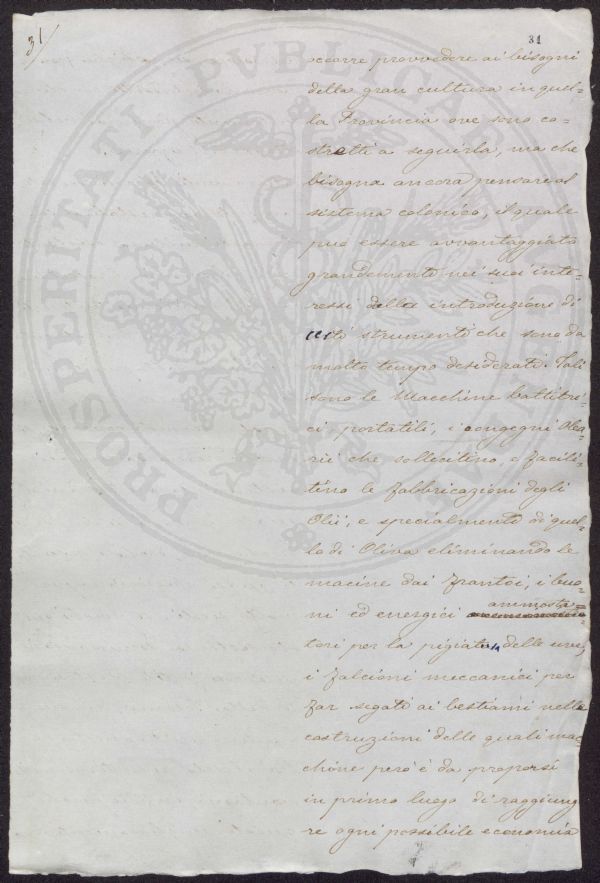 31
31
occorre provvedere ai bisogni
della gran cultura in quel-
la Provincia ove sono co-
stretti a seguirla, ma che
bisogna ancora pensare al
sistema colonico, il quale
può essere avvantaggiato
grandemente nei suoi inte-
ressi dalla introduzione di
certi strumenti che sono da
molto tempo desiderati. Tali
sono le Macchine battitri-
ci portatili, i congegni Olea-
rii che sollecitino, e facili-
tino le fabbricazioni degli
Olii, e specialmente di quel-
lo di Oliva eliminando le
macine dai frantoi, i buo-
ni ed energici ammosta-
tori per la pigiatura delle uve,
i falcioni meccanici per
far segati ai bestiami nella
costruzioni delle quali mac-
chine però è da proporsi
in primo luogo di raggiung
re ogni possibile economia
PROSPERITATI PUBLICAE